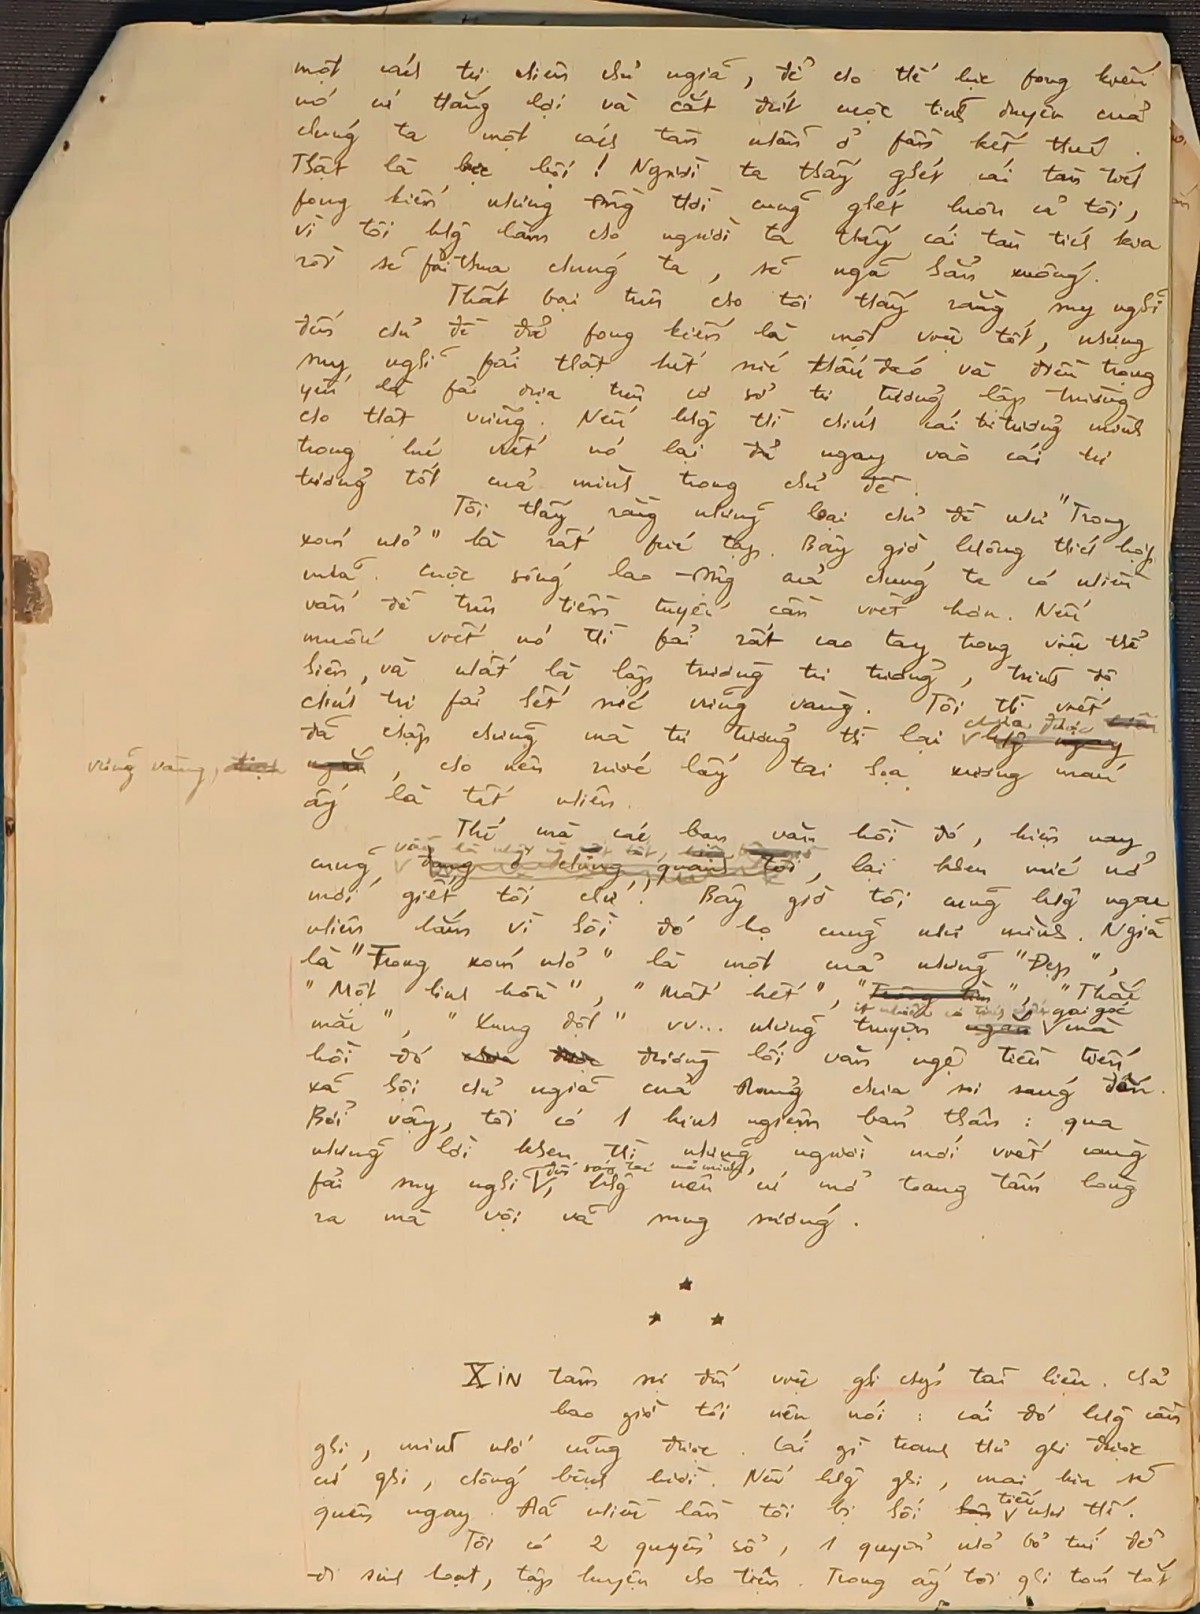 một cách tự nhiên chủ nghĩa, để cho thế lực fong kiến
nó cứ thắng lợi và cắt đứt cuộc tình duyên của
chúng ta một cách tàn nhẫn ở fần kết thúc.
Thật là bực bội! Người ta thấy ghét cái tàn tích
fong kiến nhưng đồng thời cũng ghét luôn cả tôi,
vì tôi khg làm cho người ta thấy cái tàn tích kia
rồi sẽ fải thua chúng ta, sẽ ngã hẳn xuống.
Thất bại trên cho tôi thấy rằng suy nghĩ
đến chủ đề đả fong kiến là một việc tốt, nhưng
suy nghĩ fải thật hết sức thấu đáo và điểm trọng
yếu là fải dựa trên cơ sở tư tưởng lập trường
cho thật vững. Nếu khg thì chính cái tư tưởng mình
trong lúc viết nó lại đả ngay vào cái tư
tưởng tốt của mình trong chủ đề.
Tôi thấy rằng những loại chủ đề như "Trong
xóm nhỏ" là rất fức tạp. Bây giờ không thích hợp
nữa. Cuộc sống lao động của chúng ta có nhiều
vấn đề trên tiền tuyến cần viết hơn. Nếu
muốn viết nó thì fải rất cao tay trong việc thể
hiện, và nhất là lập trường tư tưởng, trình độ
chính trị fải hết sức vững vàng. Tôi thì viết
đã chập chững mà tư tưởng thì lại chưa được
vững vàng, cho nên rước lấy tai họa xương máu
ấy là tất nhiên.
Thế mà các bạn văn hồi đó, hiện nay
cũng, lại khen mới nở
mới giết tôi chứ! Bây giờ tôi cũng khg ngạc
nhiên lắm vì hồi đó họ cũng như mình. Nghĩa
là "Trong xóm nhỏ" là một của những "Đẹp",
"Một linh hồn", "Mất hết", "Thắc
mắc", "Xung đột" vv... những truyện gai góc mà
hồi đó đường lối văn nghệ tiến tiến
xã hội chủ nghĩa của Đảng chưa soi sáng đến.
Bởi vậy, tôi có 1 kinh nghiệm bản thân: qua
những lời khen thì những người mới viết càng
fải suy nghĩ đến sáng tác mà mình, khg nên cứ mở toang tấm lòng
ra mà vội vã sung sướng.
★
★ ★
XIN tâm sự đến việc ghi chép tài liệu. Chả
bao giờ tôi nên nói: cái đó khg cần
ghi, mình nhớ cũng được. Cái gì tranh thủ ghi được
cứ ghi, chống bệnh lười. Nếu khg ghi, mai kia sẽ
quên ngay. Đã nhiều lần tôi bị hối tiếc như thế.
Tôi có 2 quyển sổ, 1 quyển nhỏ bỏ túi để
đi sinh hoạt, tập luyện cho tiện. Trong ấy tôi ghi tóm tắt